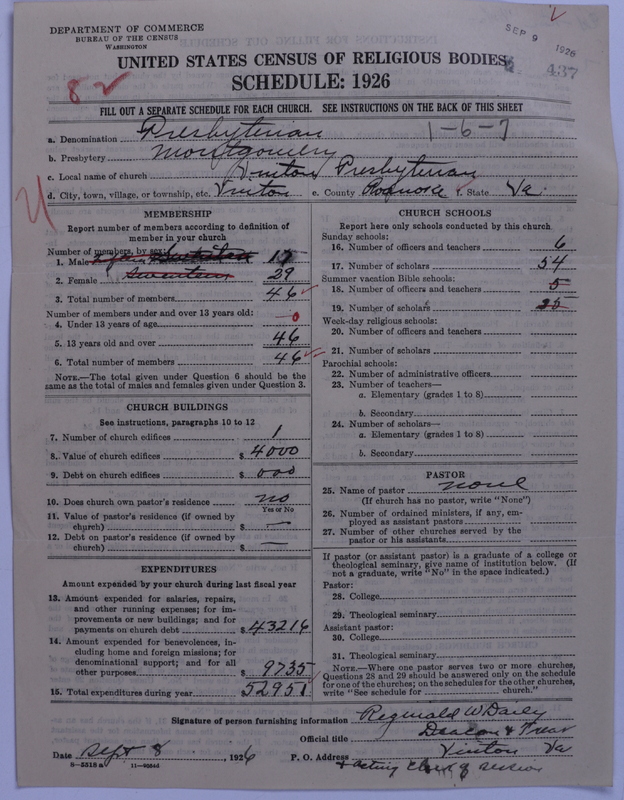 DEPARTMENT OF COMMERCE
BUREAU OF THE CENSUS
WASHINGTON
SEP 9 1926
437
UNITED STATES CENSUS OF RELIGIOUS BODIES
SCHEDULE: 1926
82
FILL OUT A SEPARATE SCHEDULE FOR EACH CHURCH. SEE INSTRUCTIONS ON THE BACK OF THIS SHEET
a. Denomination Presbyterian 1-6-7
b. Presbytery Montgomery
c. Local name of church Vinton Presbyterian
d. City, town, village, or township, etc. Vinton e. County Roanoke f. State Va.
MEMBERSHIP
Report number of members according to definition of
member in your church
Number of members by sex:
1. Male 17
2. Female Seventeen 29
3. Total number of members 46
Number of members under and over 13 years old:
4. Under 13 years of age 0
5. 13 years old and over 46
6. Total number of members 46
NOTE.—The total given under Question 6 should be
same as the total of males and females given under Question 3.
CHURCH BUILDINGS
See instructions, paragraphs 10 to 12
7. Number of church edifices 1
8. Value of church edifices $ 4000
9. Debt on church edifices $ 000
10. Does church own pastor's residence no
Yes or No
11. Value of pastor's residence (if owned by
church) $ —
12. Debt on pastor's residence (if owned by
church) $ —
EXPENDITURES
Amount expended by your church during last fiscal year
13. Amount expended for salaries, repairs,
and other running expenses; for im-
provements or new buildings; and for
payments on church debt $ 43216
14. Amount expended for benevolences, in-
cluding home and foreign missions; for
denominational support; and for all
other purposes $ 9735
15. Total expenditures during year 52951
CHURCH SCHOOLS
Report here only schools conducted by this church.
Sunday schools:
16. Number of officers and teachers 6
17. Number of scholars 54
Summer vacation Bible schools:
18. Number of officers and teachers 5
19. Number of scholars 35
Week-day religious schools:
20. Number of officers and teachers
21. Number of scholars
Parochial schools:
22. Number of administrative officers
23. Number of teachers—
a. Elementary (grades 1 to 8)
b. Secondary
24. Number of scholars—
a. Elementary (grades 1 to 8)
b. Secondary
PASTOR
25. Name of pastor none
(If church has no pastor, write "None")
26. Number of ordained ministers, if any, em-
ployed as assistant pastors
27. Number of other churches served by the
pastor or his assistants
If pastor (or assistant pastor) is a graduate of a college or
theological seminary, give name of institution below. (If
not a graduate, write "No" in the space indicated.)
Pastor:
28. College
29. Theological seminary
Assistant pastor:
30. College
31. Theological seminary
NOTE.—Where one pastor serves two or more churches,
Questions 28 and 29 should be answered only on the schedule
for one of the churches; on the schedules for the other churches,
write "See schedule for church."
Signature of person furnishing information Reginald W Daily
Official title Deacon & Treas
Date Sept 8, 1926 P. O. Address Vinton Va
8-5518a 11-9054d + acting clerk of session